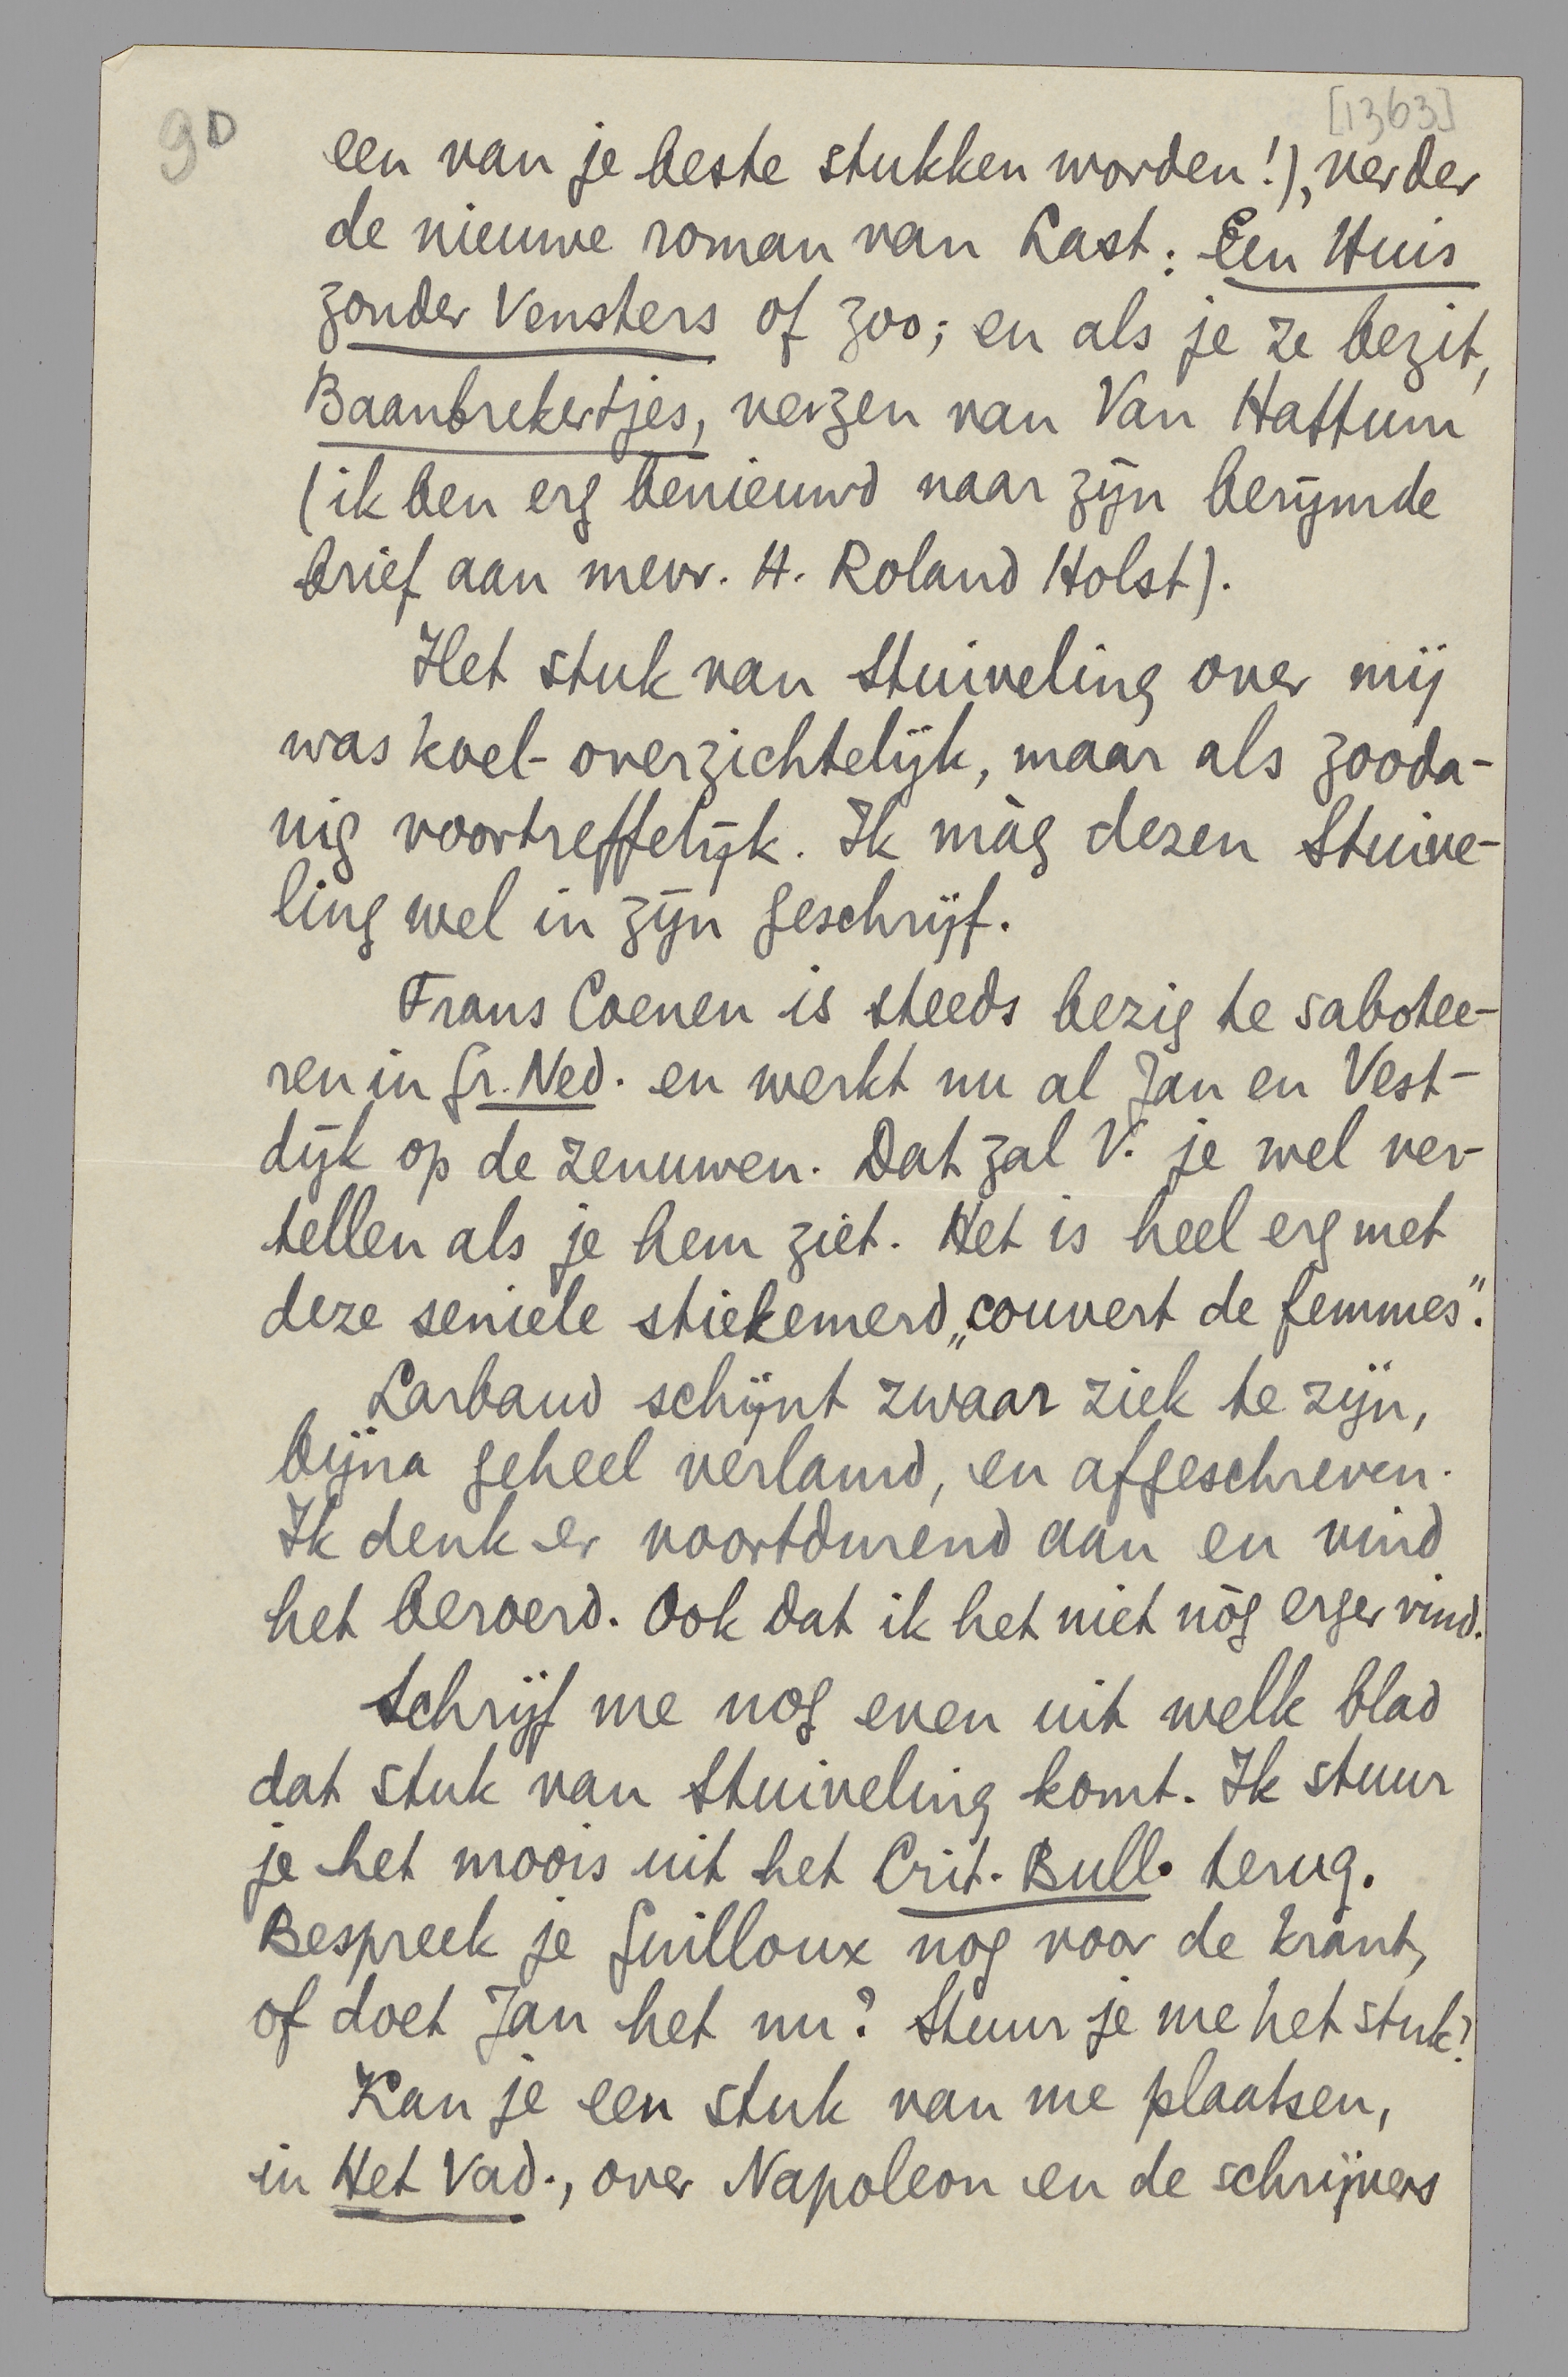 9D
[1363]
een van je beste stukken worden!), verder
de nieuwe roman van Last: Een Huis
zonder Vensters of zoo; en als je ze bezit,
Baanbrekertjes, verzen van Van Hattum
(ik ben erg benieuwd naar zijn berijmde
brief aan mevr. H. Roland Holst).
Het stuk van Stuiveling over mij
was koel-overzichtelijk, maar als zooda-
nig voortreffelijk. Ik màg dezen Stuive-
ling wel in zijn geschrijf.
Frans Coenen is steeds bezig te sabotee-
ren in Gr. Ned. en werkt nu al Jan en Vest-
dijk op de zenuwen. Dat zal V. je wel ver-
tellen als je hem ziet. Het is heel erg met
deze seniele stiekemerd „couvert de femmes".
Larbaud schijnt zwaar ziek te zijn,
bijna geheel verlamd, en afgeschreven.
Ik denk er voortdurend aan en vind
het beroerd. Ook dat ik het niet nòg erger vind.
Schrijf me nog even uit welk blad
dat stuk van Stuiveling komt. Ik stuur
je het moois uit het Crit. Bull. terug.
Bespreek je Guilloux nog voor de krant,
of doet Jan het nu? Stuur je me het stuk?
Kan je een stuk van me plaatsen,
in Het Vad., over Napoleon en de schrijvers